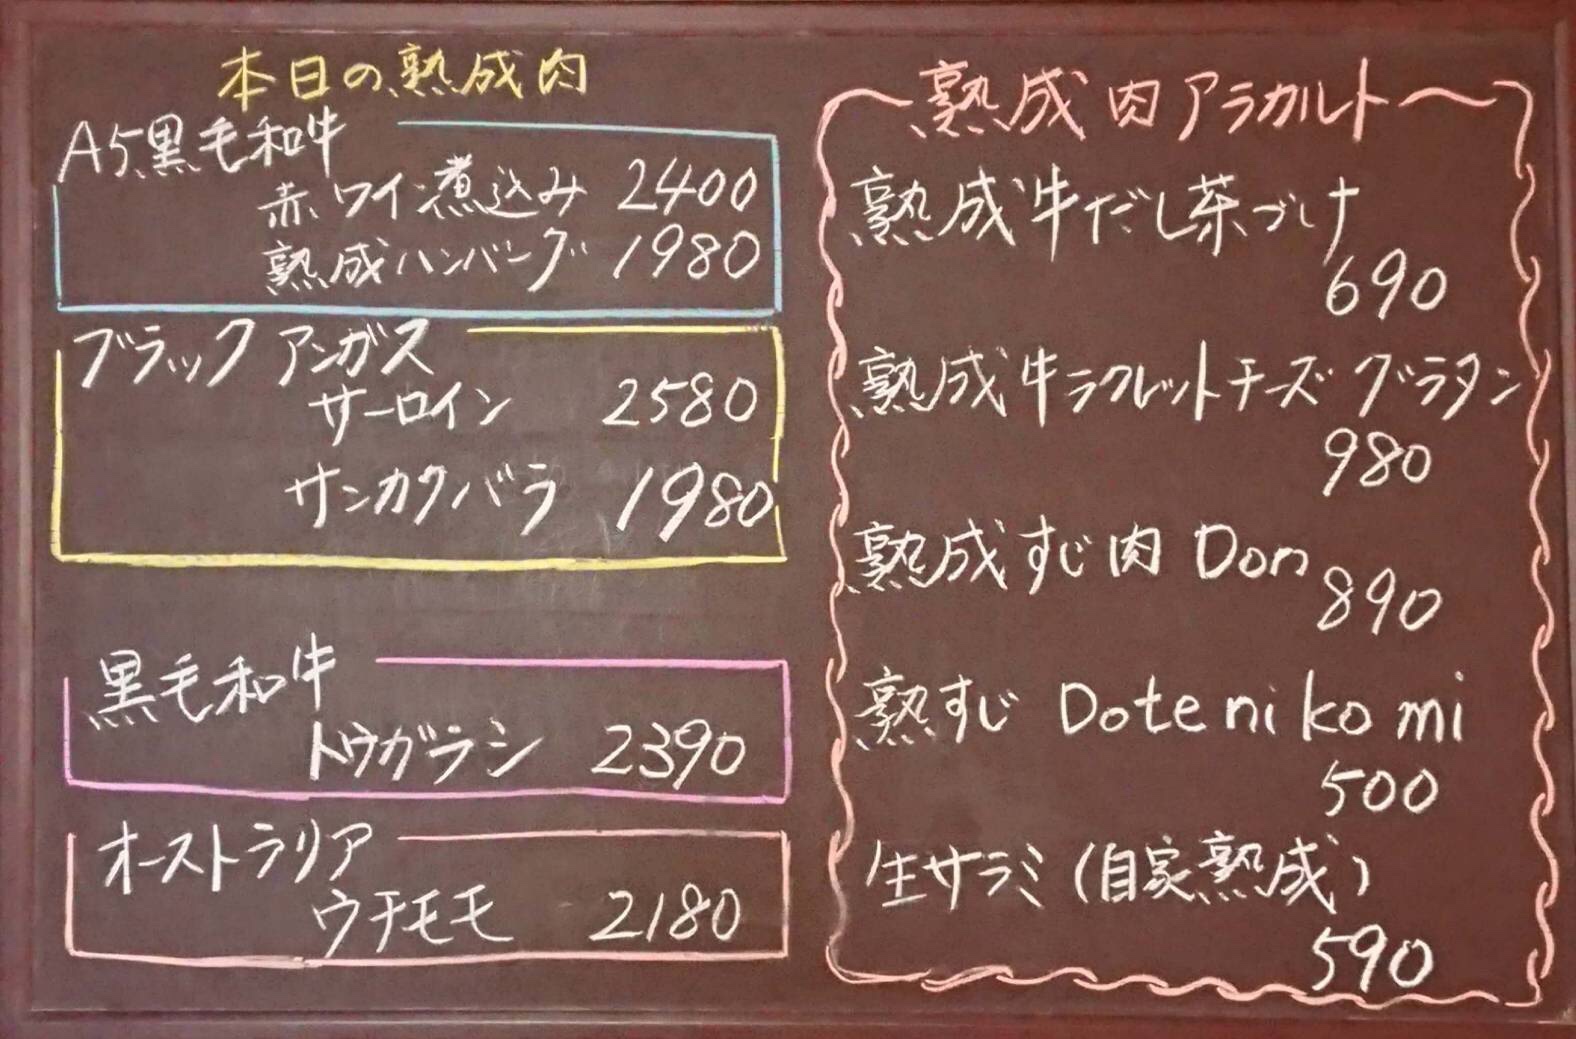 本日の熟成肉
A5黒毛和牛
赤ワイン煮込み 2400
熟成ハンバーグ 1980
ブラックアンガス
サーロイン 2580
サンカクバラ 1980
黒毛和牛
トウガラシ 2390
オーストラリア
ウチモモ 2180
熟成肉アラカルト
熟成牛だし茶づけ
690
熟成牛ラクレットチーズグラタン
980
熟成すじ肉 Don
890
熟すじ Dote ni ko mi
500
生サラミ(自家熟成)
590